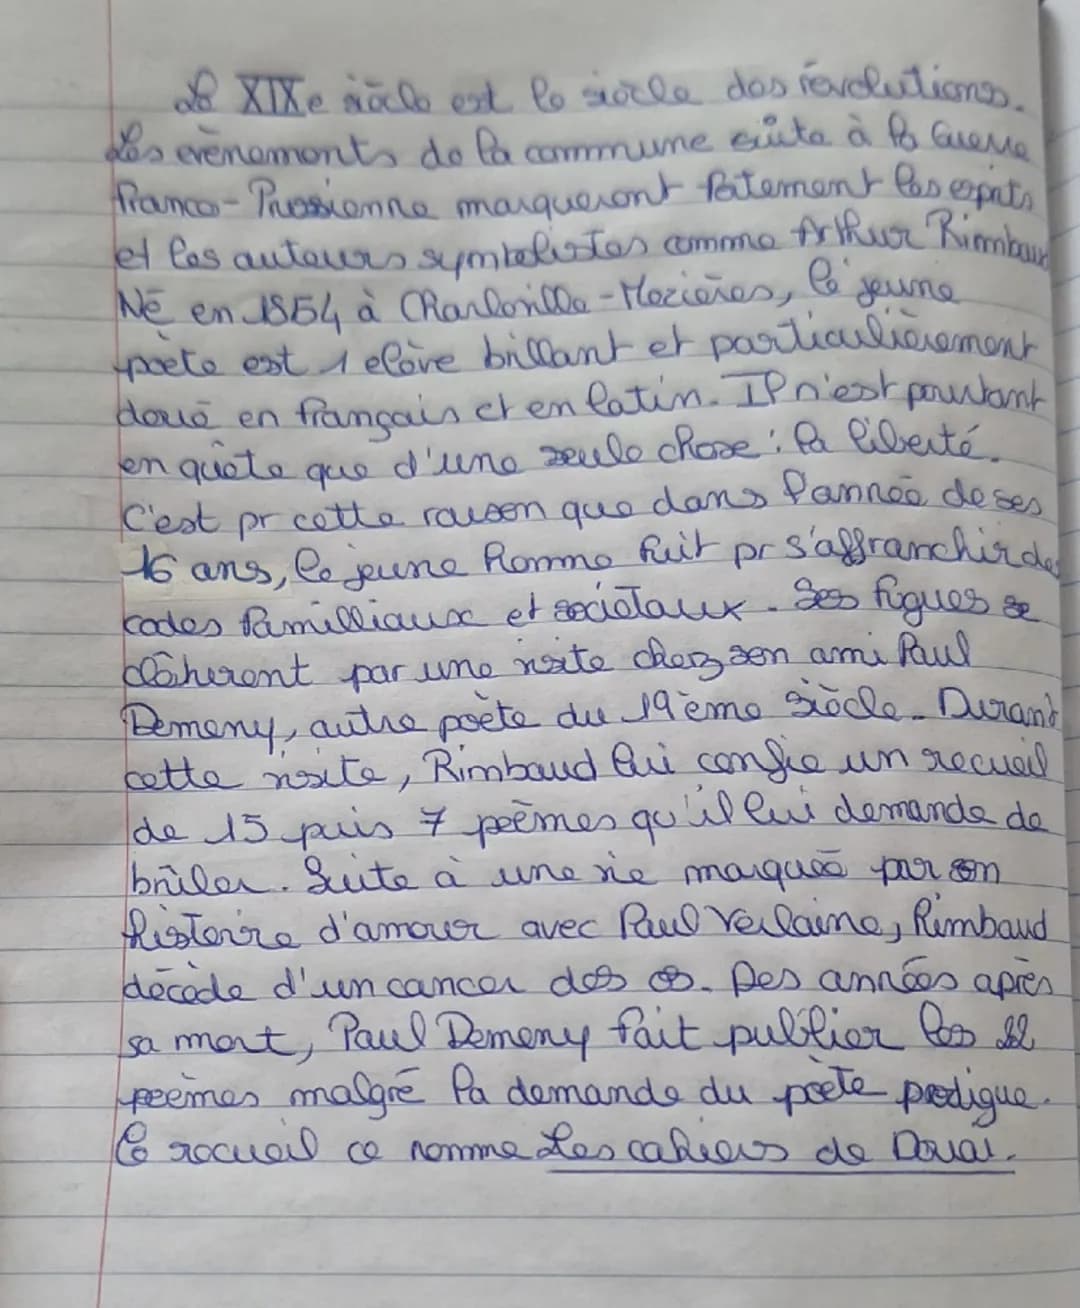 Le XIXe siècle est le siècle des révolutions.
Les evènements de la commune suite à la Guerre
Franco-Prussienne marqueront fatement les esprits
et les auteurs symbolistes comme Arthur Rimbaud
Né en 1854 à Charleville-Mezières, le jeune
poète est 1 elève brillant et particulièrement
doué en français et en latin. Il n'est pourtant
en quête que d'une seule chose : la liberté.
C'est pr cette raison que dans l'année de ses
16 ans, le jeune homme fuit pr s'affranchir des
codes familliaux et sociétaux. Ses fugues se
clôherent par une visite chez son ami Paul
Demeny, autre poète du 19ème siècle. Durant
cette visite, Rimbaud lui confie un recueil
de 15 puis 7 poèmes qu'il lui demande de
brûler. Suite à une vie marquée par son
histoire d'amour avec Paul Verlaine, Rimbaud
décède d'un cancer des os. Des années après
sa mort, Paul Demeny fait publier les 22
poèmes malgré la demande du poète prodigue.
Le recueil ce nomme Les cahiers de Douai.